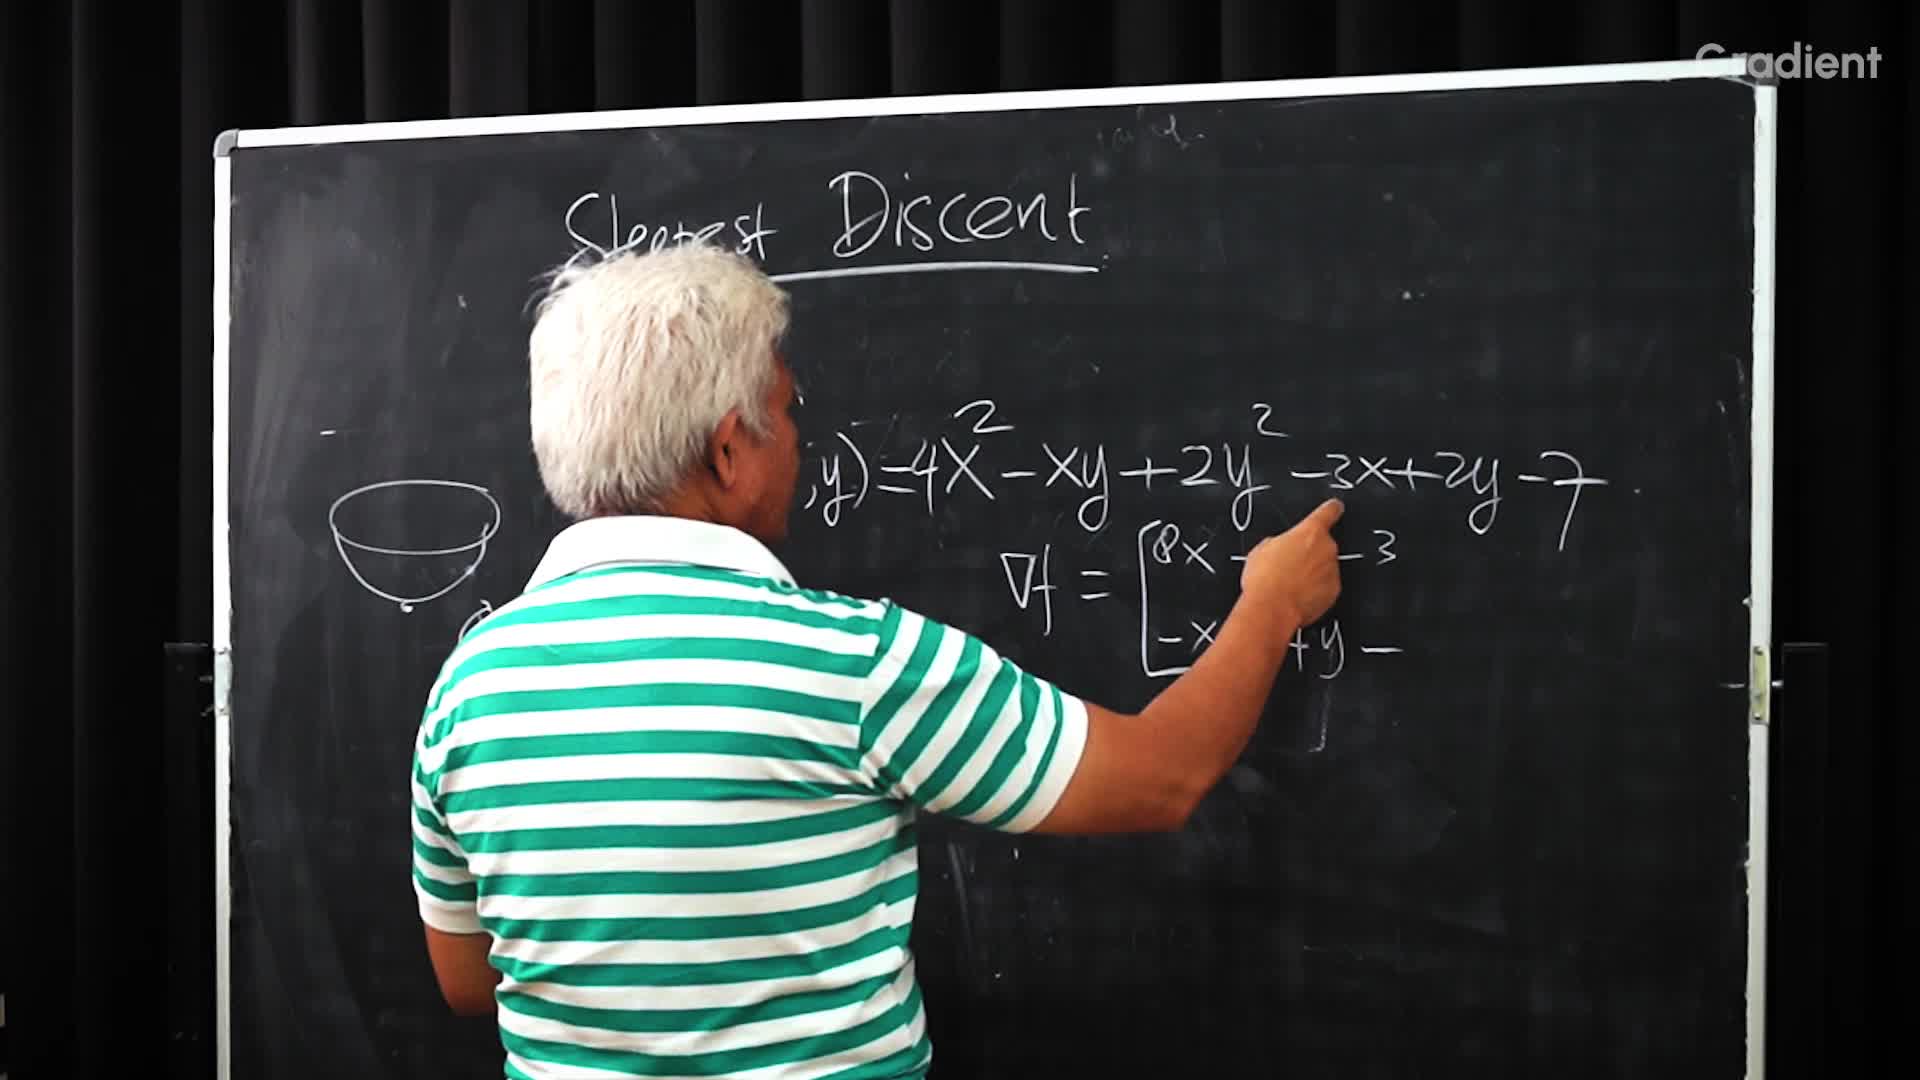 Gradient
Steepest Discent
,y)=4x²-xy+2y²-3x+2y-7
∇f = [8x - -3
-x +y -